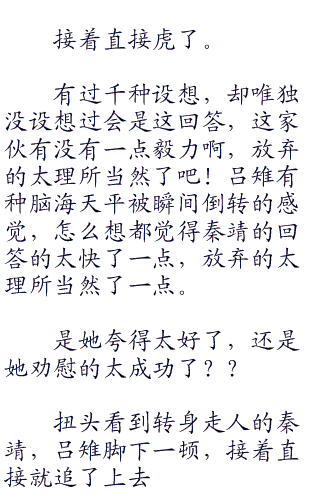 接着直接虎了。
有过千种设想，却唯独
没设想过会是这回答，这家
伙有没有一点毅力啊，放弃
的太理所当然了吧！吕雉有
种脑海天平被瞬间倒转的感
觉，怎么想都觉得秦靖的回
答的太快了一点，放弃的太
理所当然了一点。
是她夸得太好了，还是
她劝慰的太成功了？？
扭头看到转身走人的秦
靖，吕雉脚下一顿，接着直
接就追了上去